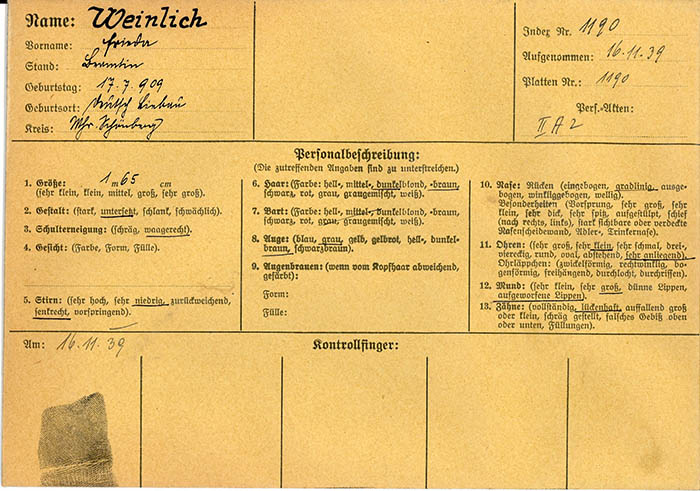 Name: Weinlich
Vorname: Frieda
Stand: Beamtin
Geburtstag: 17. 7. 909
Geburtsort: Deutsch Liebau
Kreis: Mhr. Schönberg
Index Nr. 1190
Aufgenommen: 16. 11. 39
Platten Nr.: 1190
Pers.-Akten:
II A 2
Personalbeschreibung:
(Die zutreffenden Angaben sind zu unterstreichen.)
1. Größe: 1 m 65 cm
(sehr klein, klein, mittel, groß, sehr groß).
2. Gestalt: (stark, untersetzt, schlank, schwächlich).
3. Schulterneigung: (schräg, waagerecht).
4. Gesicht: (Farbe, Form, Fülle).
5. Stirn: (sehr hoch, sehr niedrig, zurückweichend,
senkrecht, vorspringend).
6. Haar: (Farbe: hell-, mittel-, dunkelblond, -braun,
schwarz, rot, grau, graugemischt, weiß).
7. Bart: (Farbe: hell-, mittel-, dunkelblond, -braun,
schwarz, rot, grau, graugemischt, weiß).
8. Auge: (blau, grau, gelb, gelbrot, hell-, dunkel-
braun, schwarzbraun).
9. Augenbrauen: (wenn vom Kopfhaar abweichend,
gefärbt):
Form:
Fülle:
10. Nase: Rücken (eingebogen, gradlinig, ausge-
bogen, winkliggebogen, wellig).
Besonderheiten (Vorsprung, sehr groß, sehr
klein, sehr dick, sehr spitz, aufgestülpt, schief
(nach rechts, links), stark sichtbare oder verdeckte
Nasenscheidewand, Adler-, Trinkernase).
11. Ohren: (sehr groß, sehr klein, sehr schmal, drei-
viereckig, rund, oval, abstehend, sehr anliegend).
Ohrläppchen: (zwickelförmig, rechtwinklig, bo-
genförmig, freihängend, durchlocht, durchrissen).
12. Mund: (sehr klein, sehr groß, dünne Lippen,
aufgeworfene Lippen).
13. Zähne: (vollständig, lückenhaft, auffallend groß
oder klein, schräg gestellt, falsches Gebiß oben
oder unten, Füllungen).
Am: 16. 11. 39
Kontrollfinger: